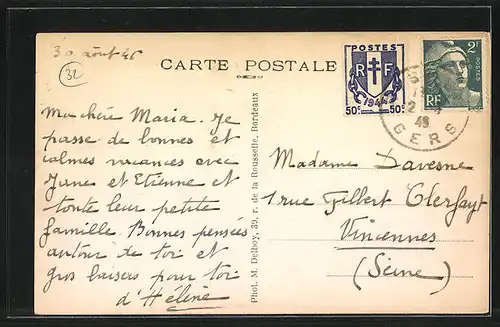 30 août 45
32
CARTE POSTALE
Ma chère Maria. Je
passe de bonnes et
calmes vacances avec
Jane et Etienne et
toute leur petite
famille Bonnes pensées
autour de toi et
gros baisers pour toi
d'Hélène
Phot. M. Delboy, 39, r. de la Rousselle, Bordeaux
POSTES
RF
1944
50c 50c
2F
POSTES
RF
45
GERS
Madame Davesne
1 rue Gilbert Clerfayt
Vincennes
(Seine)